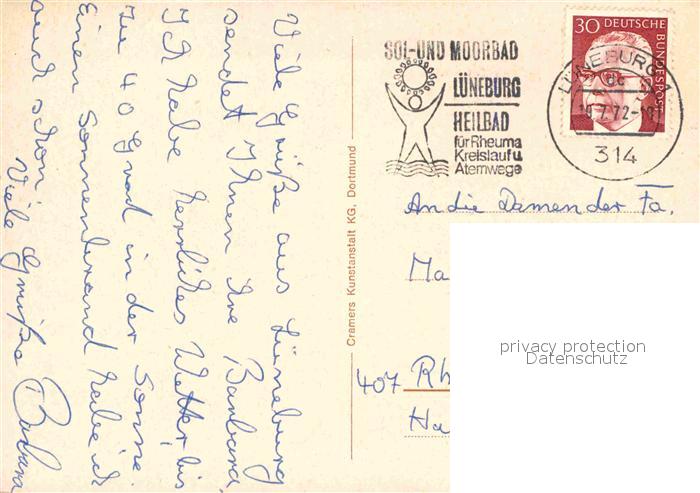 Viele Grüße aus Lüneburg
sendet Ihnen Ihre Barbara.
Ich habe herrliches Wetter, bis
zu 40 Grad in der Sonne.
Einen Sonnenbrand habe ich
auch schon.
Viele Grüße
Barbara
Cramers Kunstanstalt KG, Dortmund
SOL-UND MOORBAD
LÜNEBURG
HEILBAD
für Rheuma
Kreislauf u
Atemwege
30 DEUTSCHE BUNDESPOST
LÜNEBURG
7.72
314
An die Damen der Fa.
Ma
407 Rh
Ha
privacy protection
Datenschutz